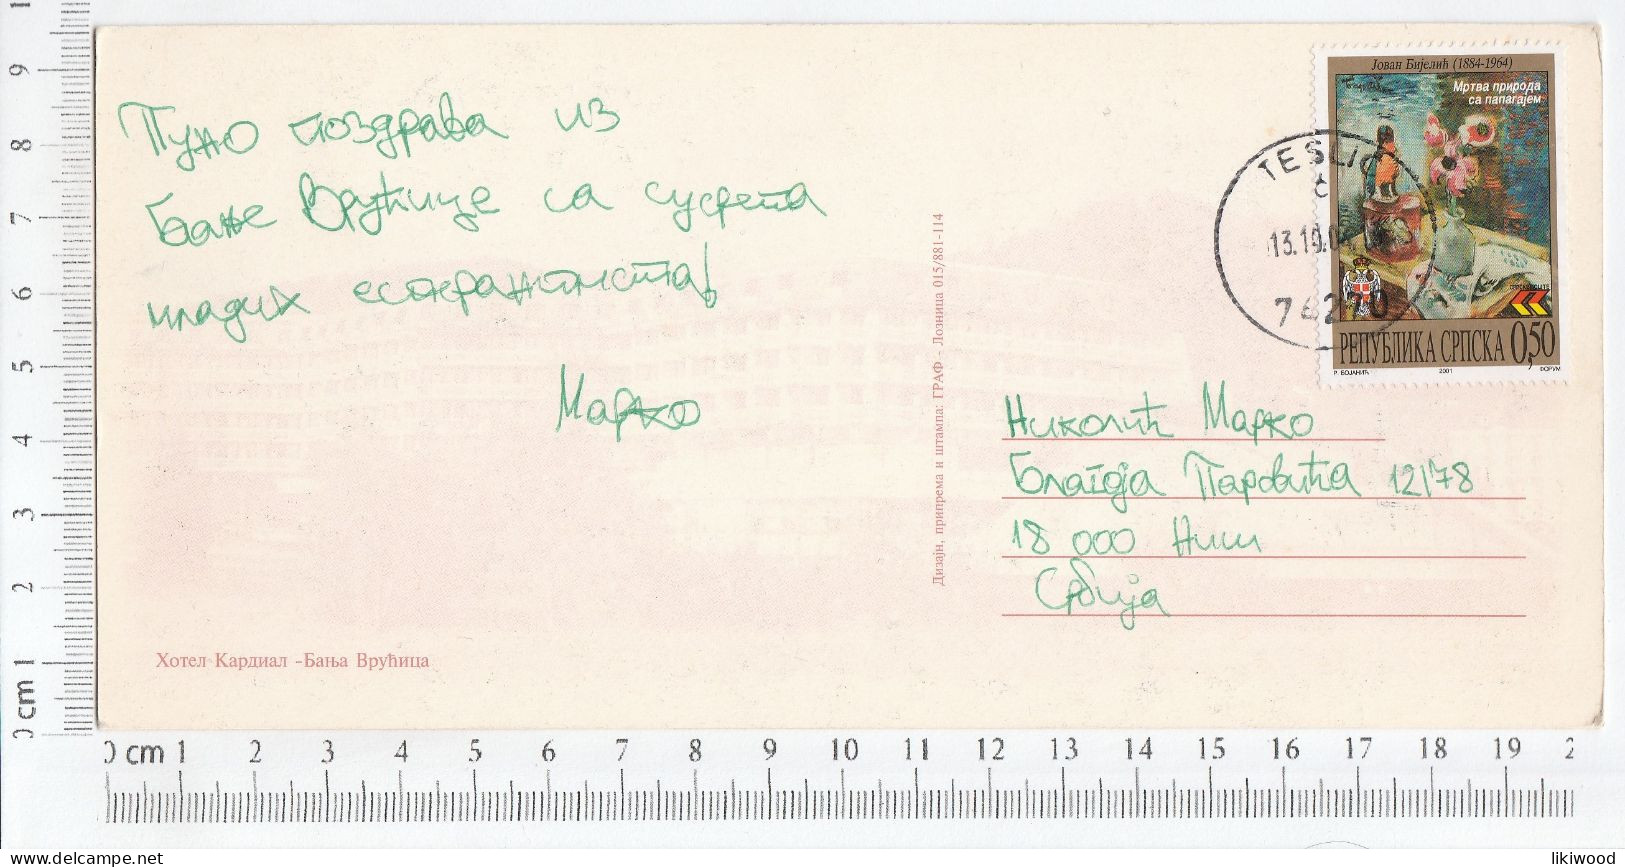 Пуно поздрава из
Бање Врућице са сусрета
младих есперантиста!
Марко
Хотел Кардиал -Бања Врућица
Дизајн, припрема и штампа: ГРАФ - Лозница 015/881-114
Јован Бијелић (1884-1964)
Мртва природа
са папагајем
РЕПУБЛИКА СРПСКА 0,50
Р. БОЈАНИЋ 2001 ФОРУМ
TESLIĆ
13.10.0
76270
Николић Марко
Благоја Паровића 12/78
18 000 Ниш
Србија
9
8
7
6
5
4
3
2
1
0 cm
0 cm 1 2 3 4 5 6 7 8 9 10 11 12 13 14 15 16 17 18 19 2
www.delcampe.net
likiwood